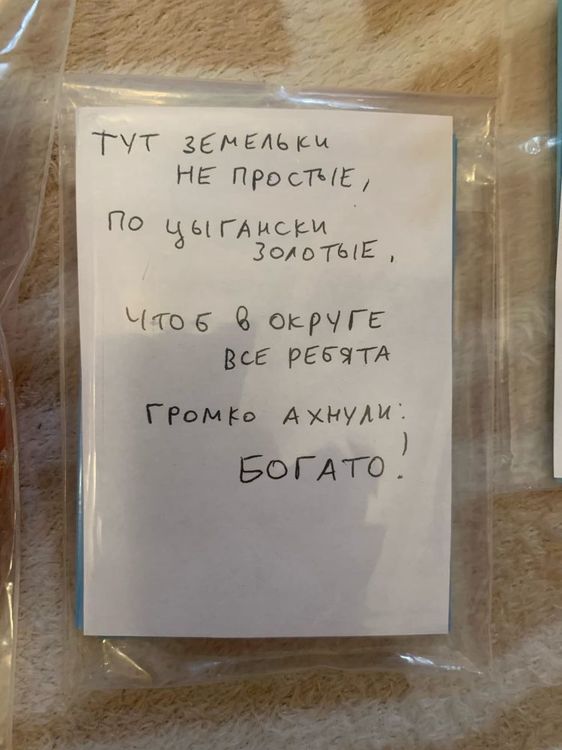 ТУТ ЗЕМЕЛЬКИ
НЕ ПРОСТЫЕ,
ПО ЦЫГАНСКИ
ЗОЛОТЫЕ,
ЧТОБ В ОКРУГЕ
ВСЕ РЕБЯТА
ГРОМКО АХНУЛИ:
БОГАТО!